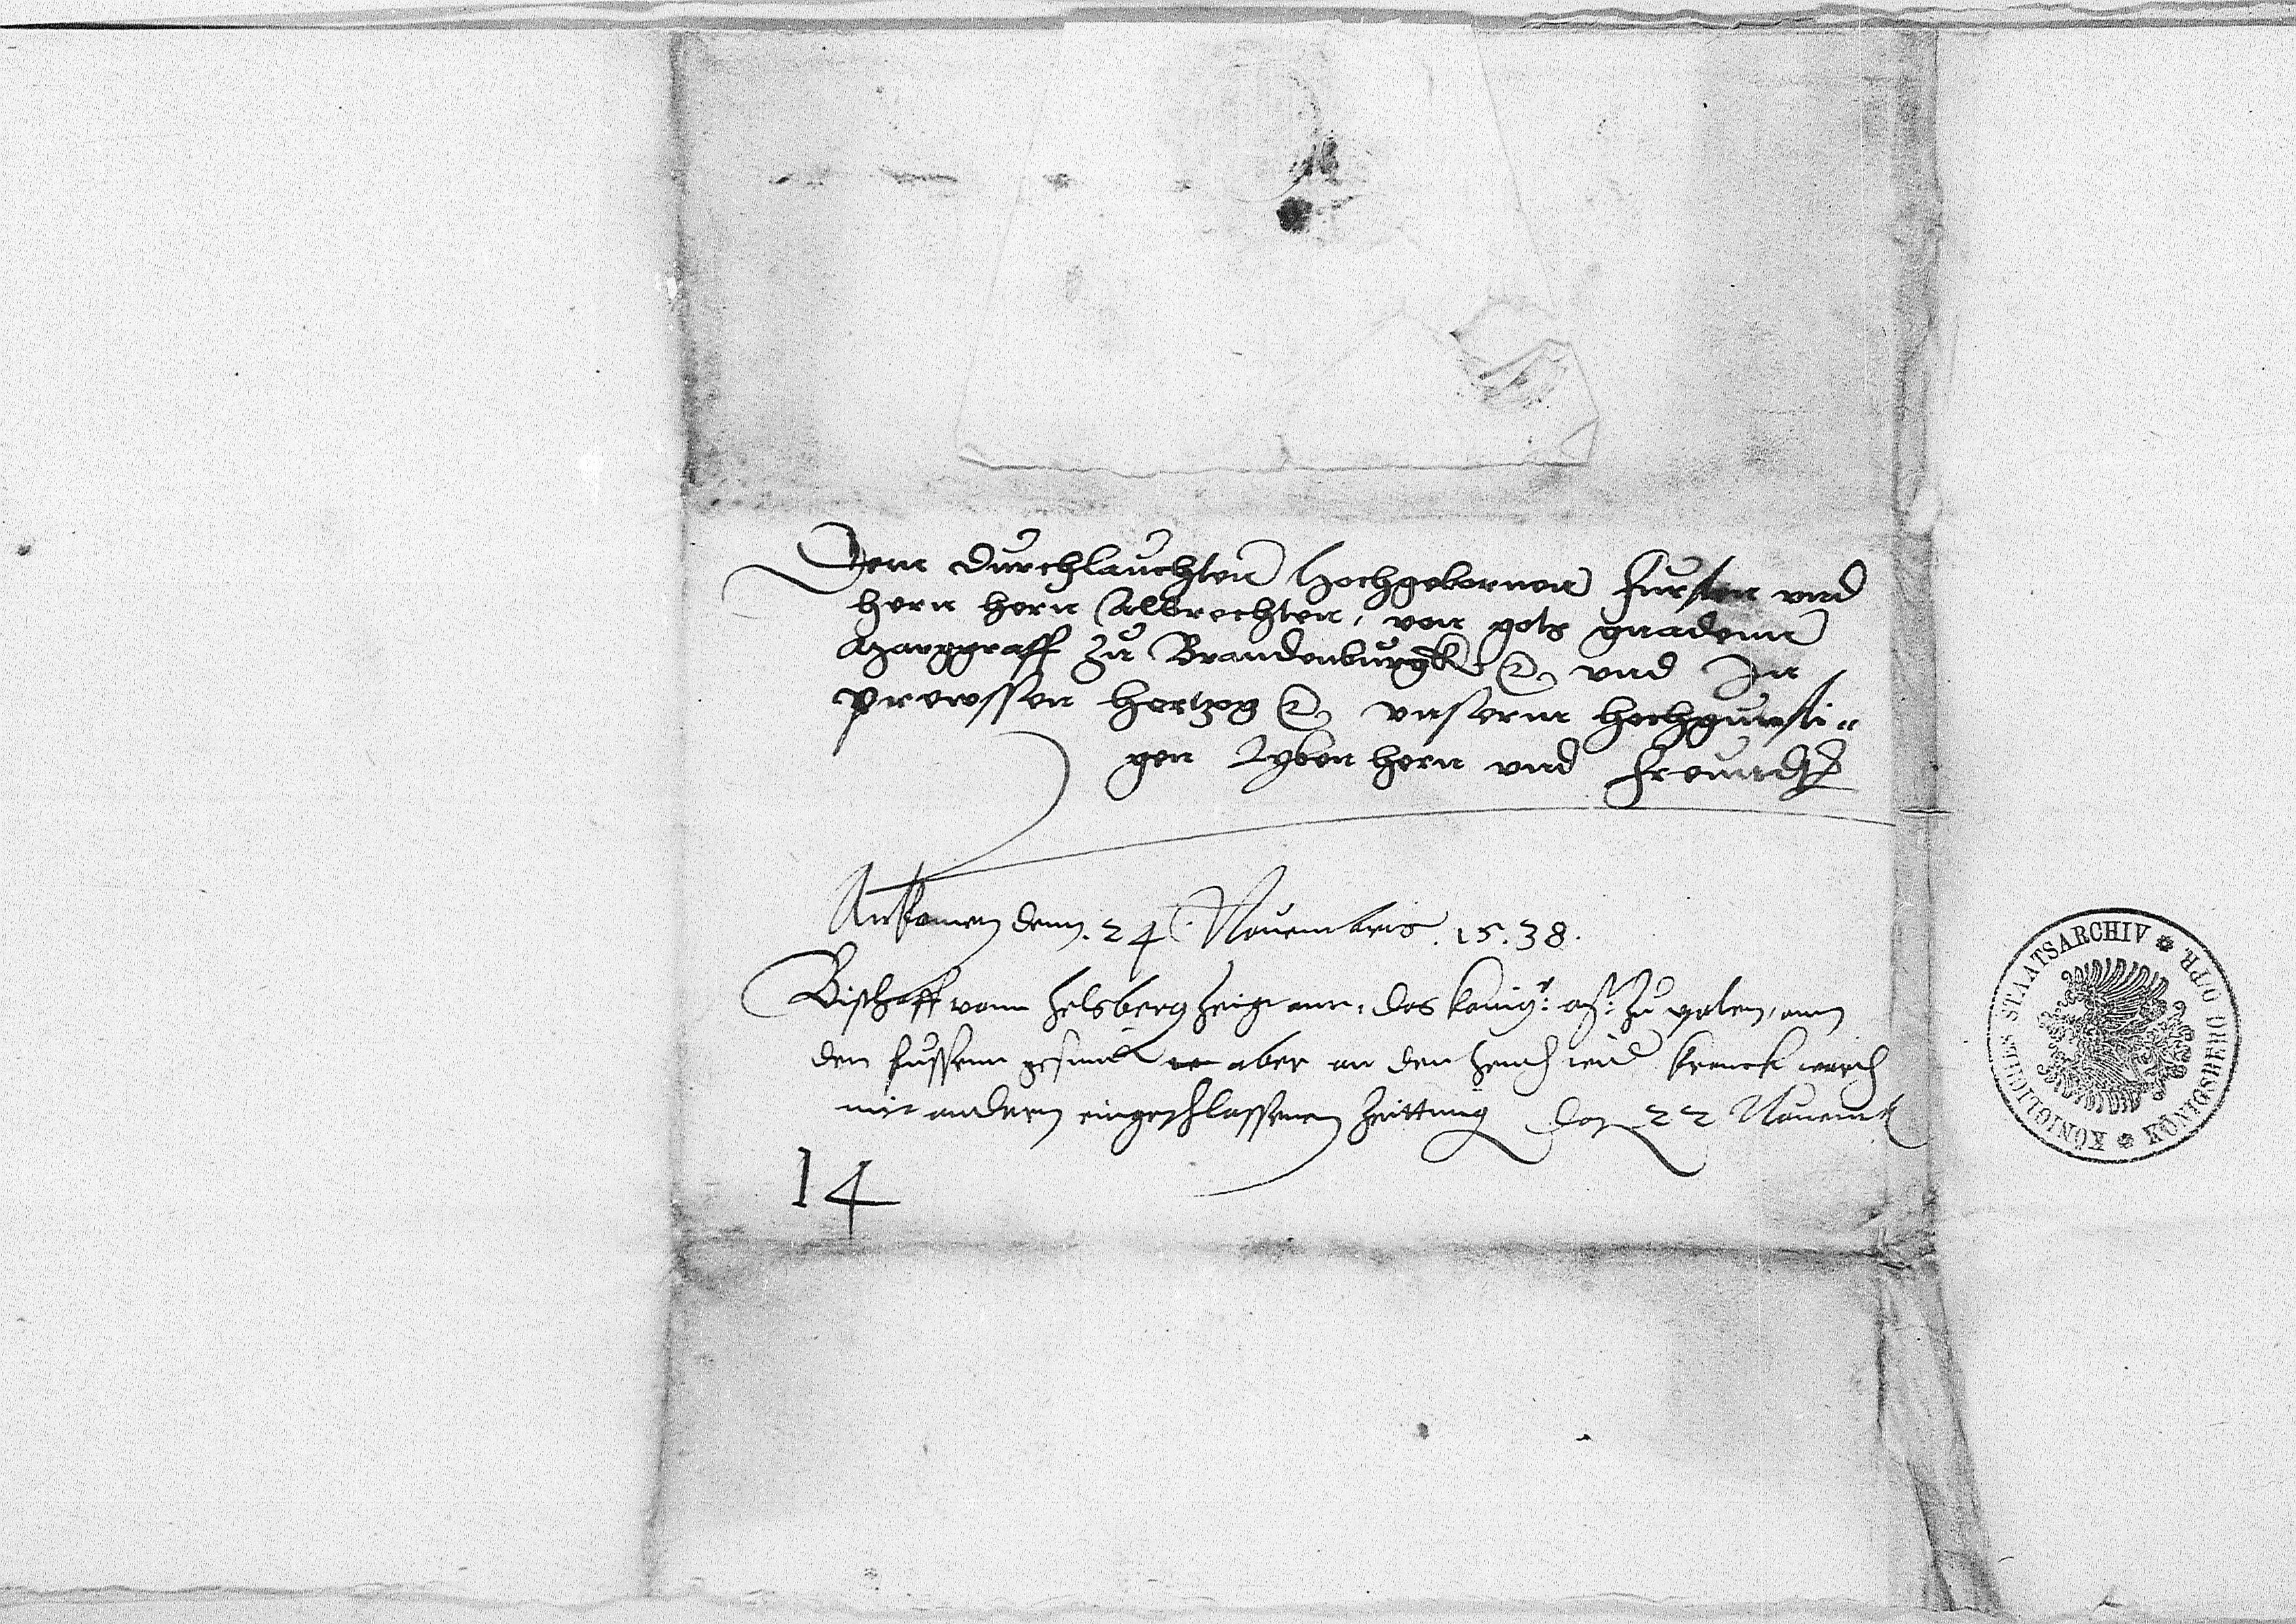 Dem durchlauchten hochgebornen fursten vnd
hern hern Albrechten, von gots gnadenn
Marggraff zu Brandenburgk etc vnd In
prewssen hertzog etc vnserm hochgunsti-
gen lyben hern vnd freundt
Ankomen denn 24 Nouembris 15.38.
Bischoff vonn helsberg zeigt ann, das konig: Mt: zu polen, ann
den fussenn gesundt aber an den hend kranck
mit andern eingeschlossenen zeittung dat 22 Nouemb
14
KÖNIGLICHES STAATSARCHIV * KÖNIGSBERG O/PR. *